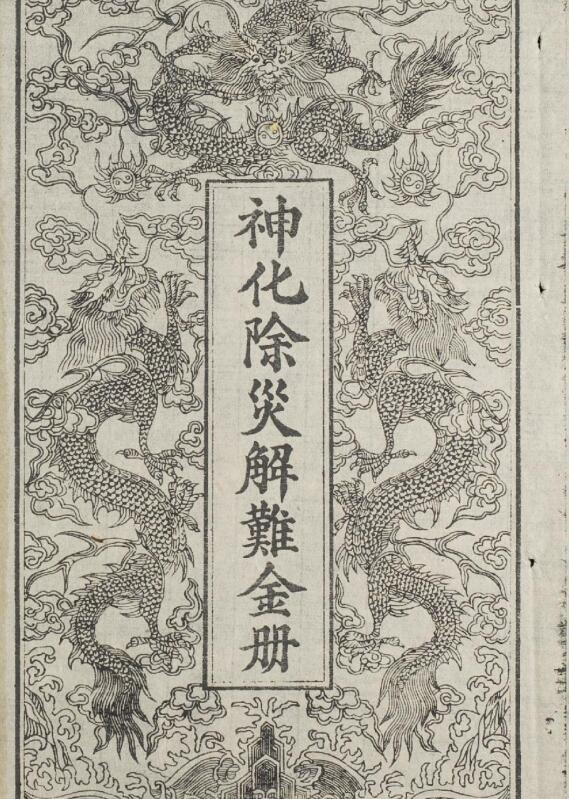 神化除災解難金册